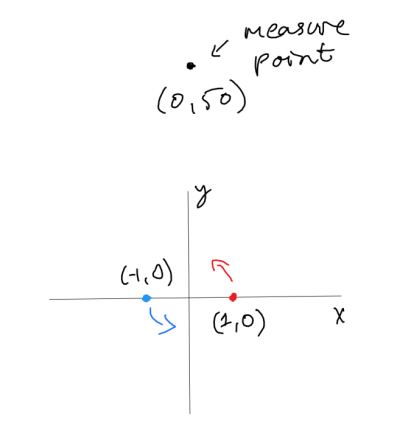 measure
point
(0,50)
y
(-1,0)
(1,0)
x